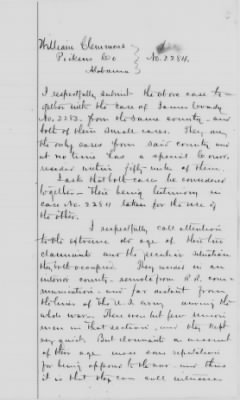 William Clemmons
Pickens Co No. 22811.
Alabama
I respectfully submit the above case to-
gether with the case of James
No. 2283. from the same county - and
both of them small cases. They are
the only cases from said county and
at no time has a special Comr.
resided within fifty miles of them.
I ask that both cases be considered
together - There being testimony in
case No. 22811 taken for the use of
the other.
I respectfully call attention
to the extreme old age of these two
claimants and the peculiar situation
they both occupied. They resided in an
interior county - remote from R.R. com-
munication - and far distant from
the lines of the U.S. army during the
whole war. There were but few union
men in that section, and they kept
very quiet. But claimants on account
of their age made some reputation
for being opposed to the war and thus
it is that they can call witnesses